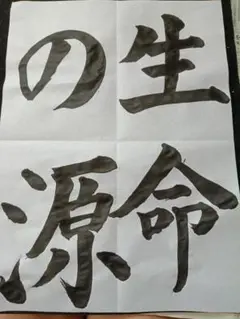 生命
の源